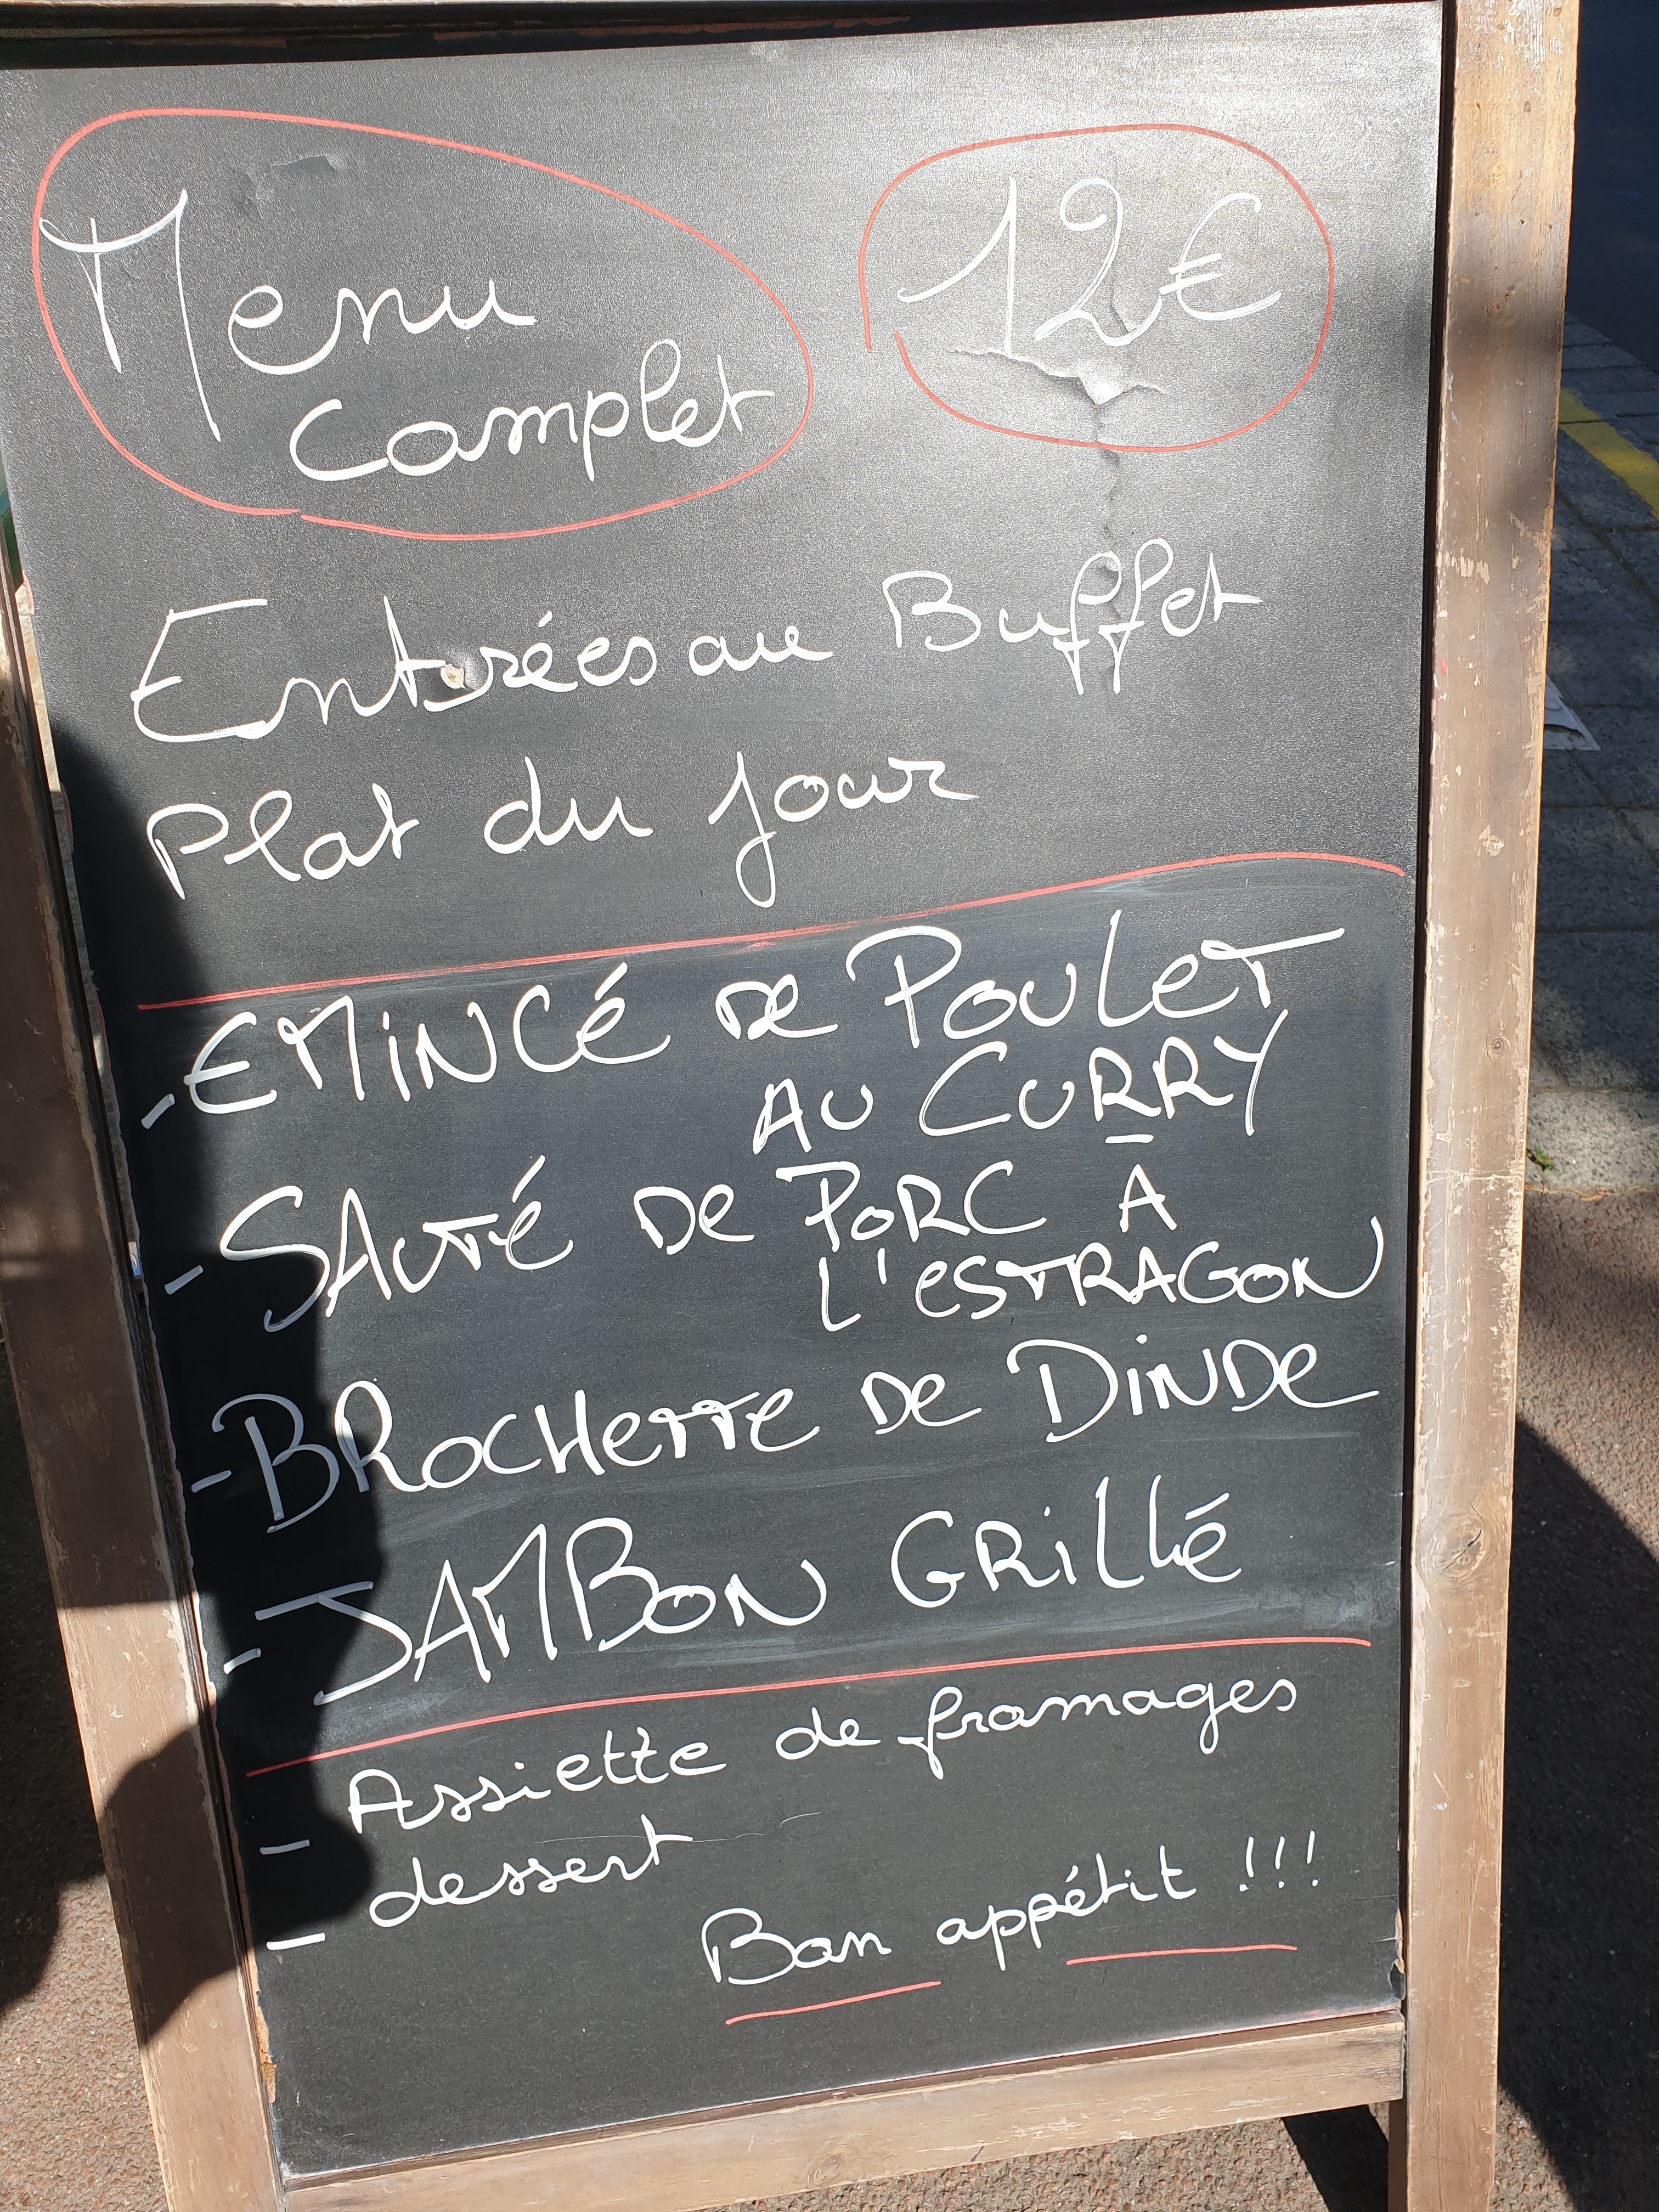 Menu
complet
12€
Entrées au Buffet
Plat du jour
-EMiNCé De POULeT
AU CURRY
-SAUTé De PORC A
L'eSTRAGON
-BROCHeTTe De DiNDe
-JAMBON GRiLLé
- Assiette de fromages
- dessert
Bon appétit !!!